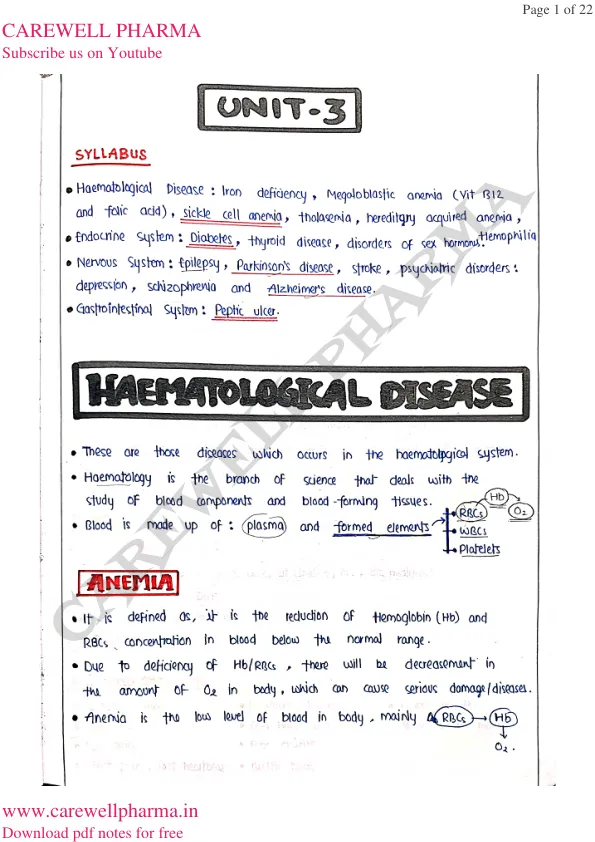 Page 1 of 22
CAREWELL PHARMA
Subscribe us on Youtube
UNIT-3
SYLLABUS
• Haematological Disease : Iron deficiency, Megaloblastic anemia (Vit B12
and folic acid), sickle cell anemia, thalasemia, hereditary acquired anemia,
Hemophilia
• Endocrine System : Diabetes, thyroid disease, disorders of sex hormones.
• Nervous System : Epilepsy, Parkinson's disease, stroke, psychiatric disorders :
depression, schizophrenia and Alzheimer's disease.
• Gastrointestinal System : Peptic ulcer.
HAEMATOLOGICAL DISEASE
• These are those diseases which occurs in the haematological system.
• Haematology is the branch of science that deals with the
study of blood components and blood-forming tissues.
• Blood is made up of : plasma and formed elements
• RBCs Hb O₂
• WBCs
• Platelets
ANEMIA
• It is defined as, it is the reduction of Hemoglobin (Hb) and
RBCs concentration in blood below the normal range.
• Due to deficiency of Hb/RBCs, there will be decreasement in
the amount of O₂ in body, which can cause serious damage/diseases.
• Anemia is the low level of blood in body, mainly RBCs → Hb
↓
O₂.
CAREWELL PHARMA
www.carewellpharma.in
Download pdf notes for free